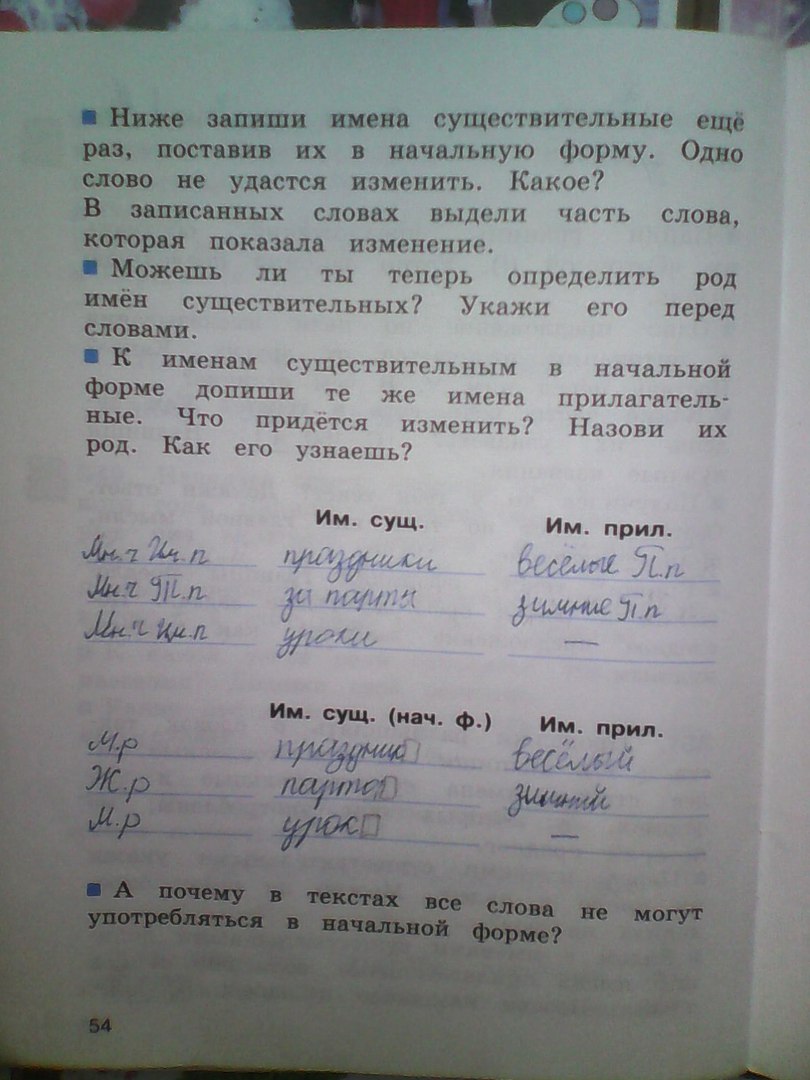 Ниже запиши имена существительные ещё
раз, поставив их в начальную форму. Одно
слово не удастся изменить. Какое?
В записанных словах выдели часть слова,
которая показала изменение.
Можешь ли ты теперь определить род
имён существительных? Укажи его перед
словами.
К именам существительным в начальной
форме допиши те же имена прилагатель-
ные. Что придётся изменить? Назови их
род. Как его узнаешь?
Им. сущ. Им. прил.
Мн.ч Им.п праздники весёлые П.п
Мн.ч Т.п за парты зимние П.п
Мн.ч Им.п уроки —
Им. сущ. (нач. ф.) Им. прил.
М.р праздник весёлый
Ж.р парта зимний
М.р урок —
А почему в текстах все слова не могут
употребляться в начальной форме?
54